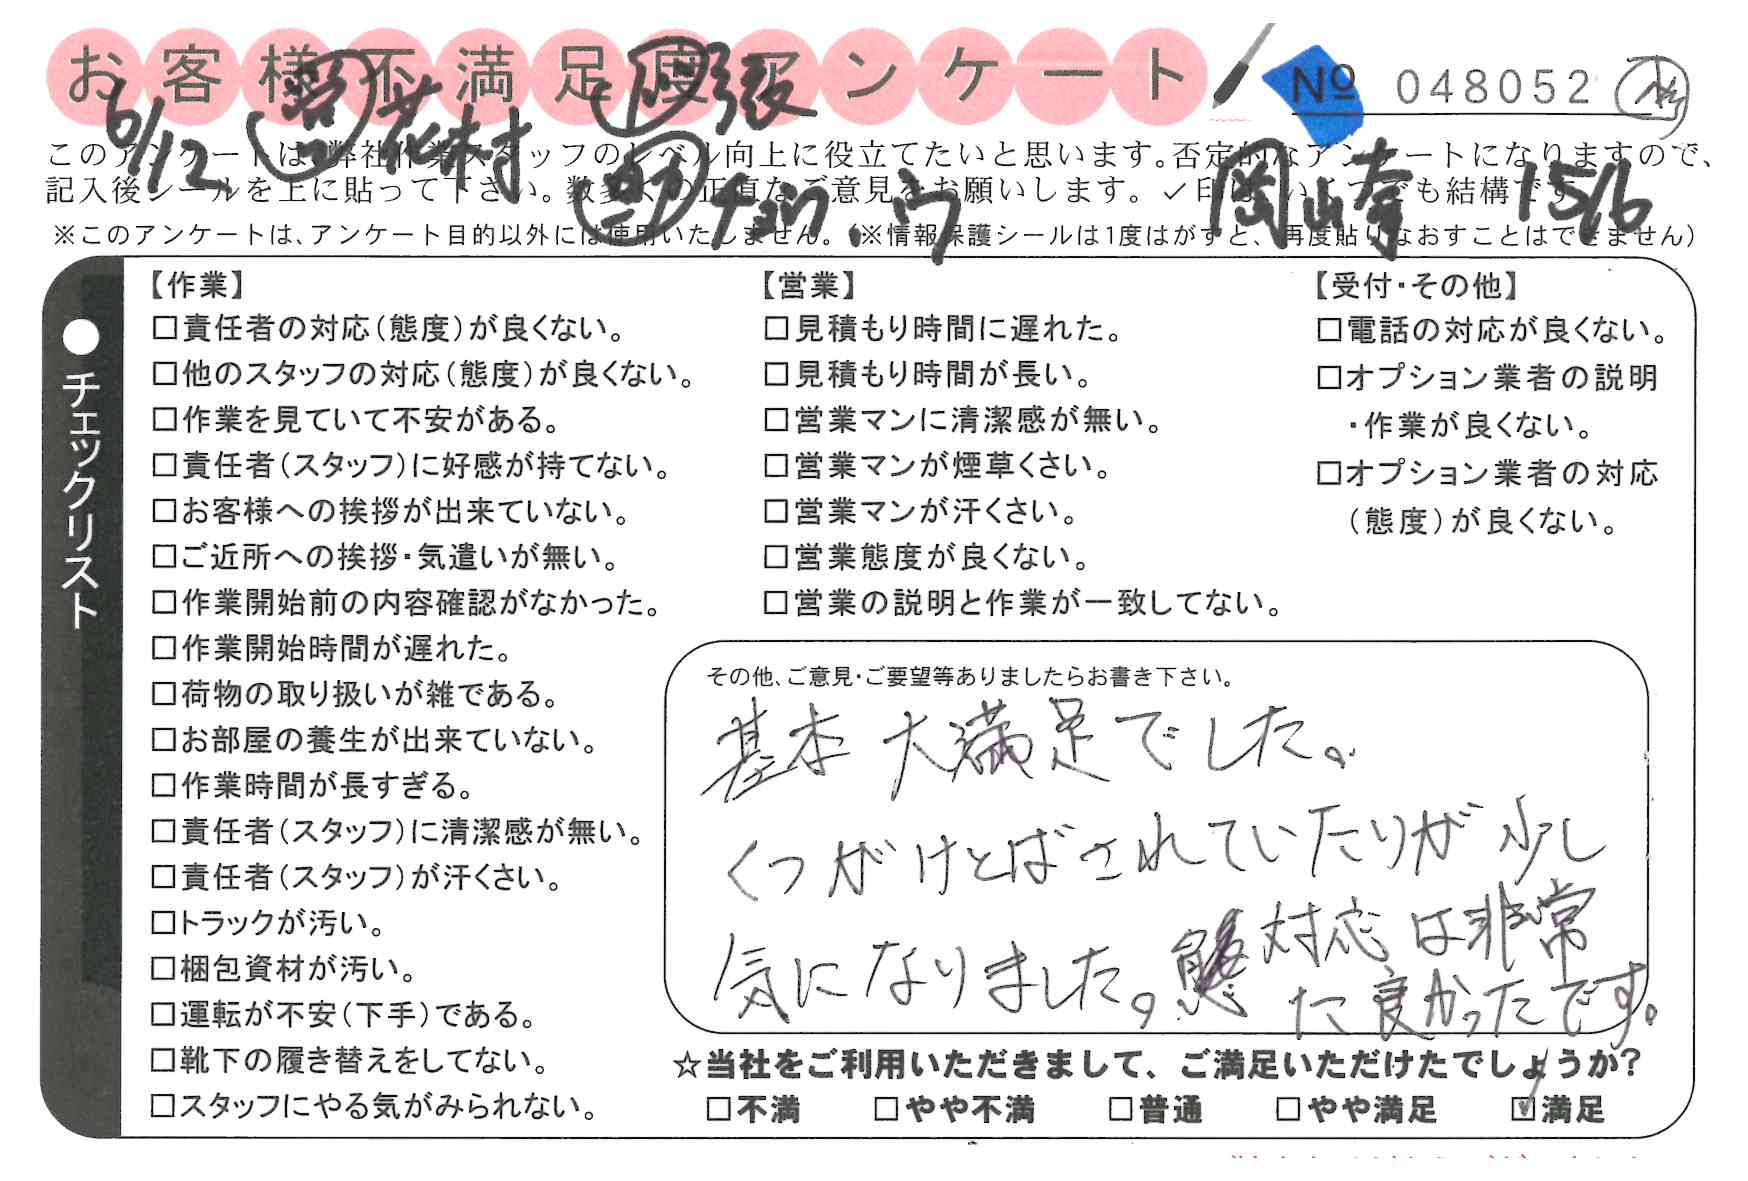 お客様不満足度アンケート
№ 048052
6/12
花村
張
岡崎 156
このアンケートは、弊社作業スタッフのレベル向上に役立てたいと思います。否定的なアンケートになりますので、
記入後シールを上に貼って下さい。数多くの正直なご意見をお願いします。✓印は、いくつでも結構です。
※このアンケートは、アンケート目的以外には使用いたしません。(※情報保護シールは1度はがすと、再度貼りなおすことはできません)
●チェックリスト
【作業】
□責任者の対応(態度)が良くない。
□他のスタッフの対応(態度)が良くない。
□作業を見ていて不安がある。
□責任者(スタッフ)に好感が持てない。
□お客様への挨拶が出来ていない。
□ご近所への挨拶・気遣いが無い。
□作業開始前の内容確認がなかった。
□作業開始時間が遅れた。
□荷物の取り扱いが雑である。
□お部屋の養生が出来ていない。
□作業時間が長すぎる。
□責任者(スタッフ)に清潔感が無い。
□責任者(スタッフ)が汗くさい。
□トラックが汚い。
□梱包資材が汚い。
□運転が不安(下手)である。
□靴下の履き替えをしてない。
□スタッフにやる気がみられない。
【営業】
□見積もり時間に遅れた。
□見積もり時間が長い。
□営業マンに清潔感が無い。
□営業マンが煙草くさい。
□営業マンが汗くさい。
□営業態度が良くない。
□営業の説明と作業が一致してない。
【受付・その他】
□電話の対応が良くない。
□オプション業者の説明
・作業が良くない。
□オプション業者の対応
(態度)が良くない。
その他、ご意見・ご要望等ありましたらお書き下さい。
基本 大満足でした。
くつがけとばされていたりが少し
気になりました。対応は非常
に良かったです。
☆当社をご利用いただきまして、ご満足いただけたでしょうか?
□不満 □やや不満 □普通 □やや満足 ☑満足